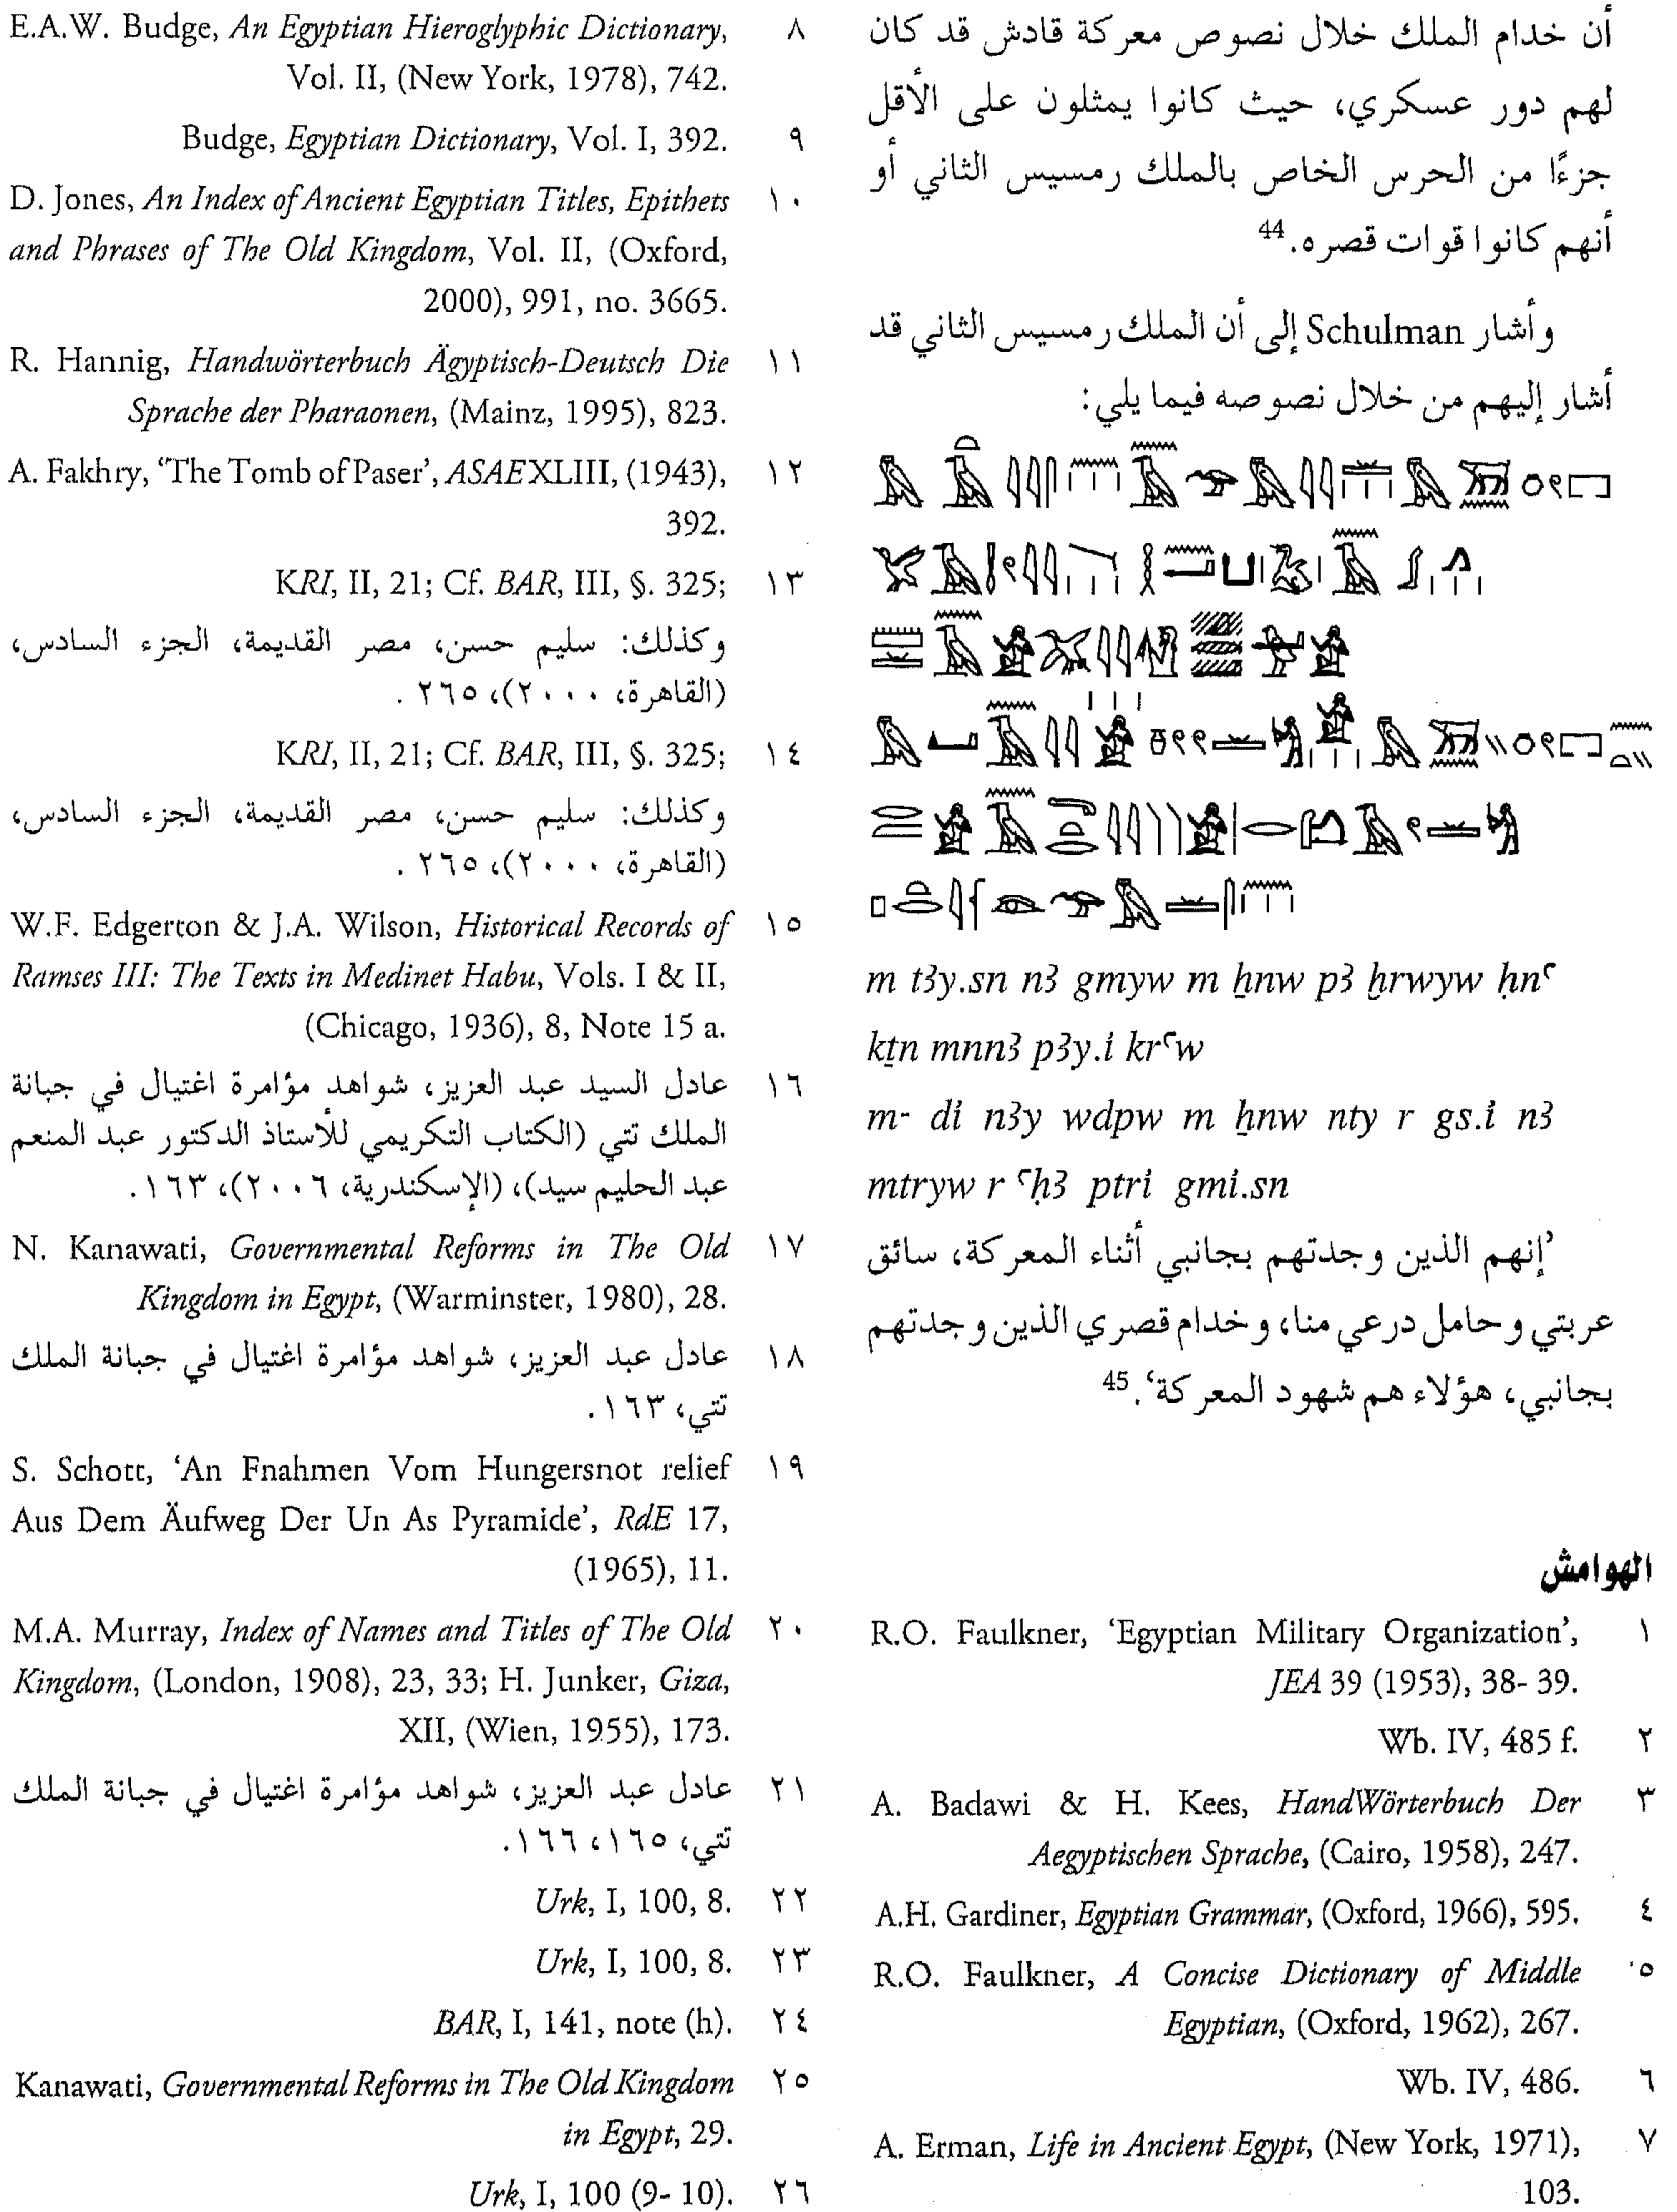 أن خدام الملك خلال نصوص معركة قادش قد كان
لهم دور عسكري، حيث كانوا يمثلون على الأقل
جزءًا من الحرس الخاص بالملك رمسيس الثاني أو
أنهم كانوا قوات قصره.44
وأشار Schulman إلى أن الملك رمسيس الثاني قد
أشار إليهم من خلال نصوصه فيما يلي:
m t3y.sn n3 gmyw m ẖnw p3 ḫrwyw ḥnꜥ
kṯn mnn3 p3y.i krꜥw
m- di n3y wdpw m ẖnw nty r gs.i n3
mtryw r ꜥḥ3 ptri gmi.sn
’إنهم الذين وجدتهم بجانبي أثناء المعركة، سائق
عربتي وحامل درعي منا، وخدام قصري الذين وجدتهم
بجانبي، هؤلاء هم شهود المعركة‘.45
الهوامش
١ R.O. Faulkner, ‘Egyptian Military Organization’,
JEA 39 (1953), 38- 39.
٢ Wb. IV, 485 f.
٣ A. Badawi & H. Kees, HandWörterbuch Der
Aegyptischen Sprache, (Cairo, 1958), 247.
٤ A.H. Gardiner, Egyptian Grammar, (Oxford, 1966), 595.
٥ R.O. Faulkner, A Concise Dictionary of Middle
Egyptian, (Oxford, 1962), 267.
٦ Wb. IV, 486.
٧ A. Erman, Life in Ancient Egypt, (New York, 1971),
103.
٨ E.A.W. Budge, An Egyptian Hieroglyphic Dictionary,
Vol. II, (New York, 1978), 742.
٩ Budge, Egyptian Dictionary, Vol. I, 392.
١٠ D. Jones, An Index of Ancient Egyptian Titles, Epithets
and Phrases of The Old Kingdom, Vol. II, (Oxford,
2000), 991, no. 3665.
١١ R. Hannig, Handwörterbuch Ägyptisch-Deutsch Die
Sprache der Pharaonen, (Mainz, 1995), 823.
١٢ A. Fakhry, ‘The Tomb of Paser’, ASAE XLIII, (1943),
392.
١٣ KRI, II, 21; Cf. BAR, III, §. 325;
وكذلك: سليم حسن، مصر القديمة، الجزء السادس،
(القاهرة، ٢٠٠٠)، ٢٦٥ .
١٤ KRI, II, 21; Cf. BAR, III, §. 325;
وكذلك: سليم حسن، مصر القديمة، الجزء السادس،
(القاهرة، ٢٠٠٠)، ٢٦٥ .
١٥ W.F. Edgerton & J.A. Wilson, Historical Records of
Ramses III: The Texts in Medinet Habu, Vols. I & II,
(Chicago, 1936), 8, Note 15 a.
١٦ عادل السيد عبد العزيز، شواهد مؤامرة اغتيال في جبانة
الملك تتي (الكتاب التكريمي للأستاذ الدكتور عبد المنعم
عبد الحليم سيد)، (الإسكندرية، ٢٠٠٦)، ١٦٣.
١٧ N. Kanawati, Governmental Reforms in The Old
Kingdom in Egypt, (Warminster, 1980), 28.
١٨ عادل عبد العزيز، شواهد مؤامرة اغتيال في جبانة الملك
تتي، ١٦٣.
١٩ S. Schott, ‘An Fnahmen Vom Hungersnot relief
Aus Dem Äufweg Der Un As Pyramide’, RdE 17,
(1965), 11.
٢٠ M.A. Murray, Index of Names and Titles of The Old
Kingdom, (London, 1908), 23, 33; H. Junker, Giza,
XII, (Wien, 1955), 173.
٢١ عادل عبد العزيز، شواهد مؤامرة اغتيال في جبانة الملك
تتي، ١٦٥، ١٦٦.
٢٢ Urk, I, 100, 8.
٢٣ Urk, I, 100, 8.
٢٤ BAR, I, 141, note (h).
٢٥ Kanawati, Governmental Reforms in The Old Kingdom
in Egypt, 29.
٢٦ Urk, I, 100 (9- 10).